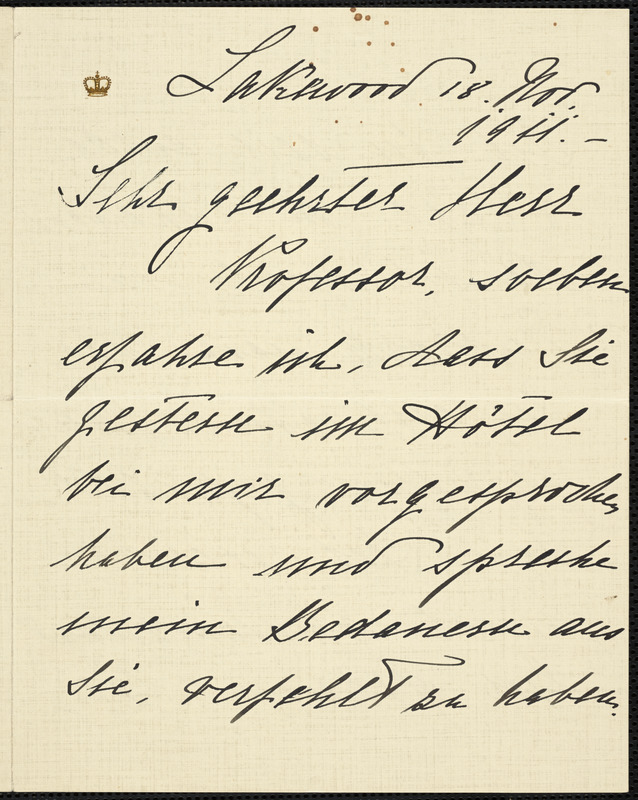 Lakewood 18. Nov.
1911. –
Sehr geehrter Herr
Professor, soeben
erfahre ich, dass Sie
gestern im Hôtel
bei mir vorgesprochen
haben und spreche
mein Bedauern aus
Sie, verfehlt zu haben.